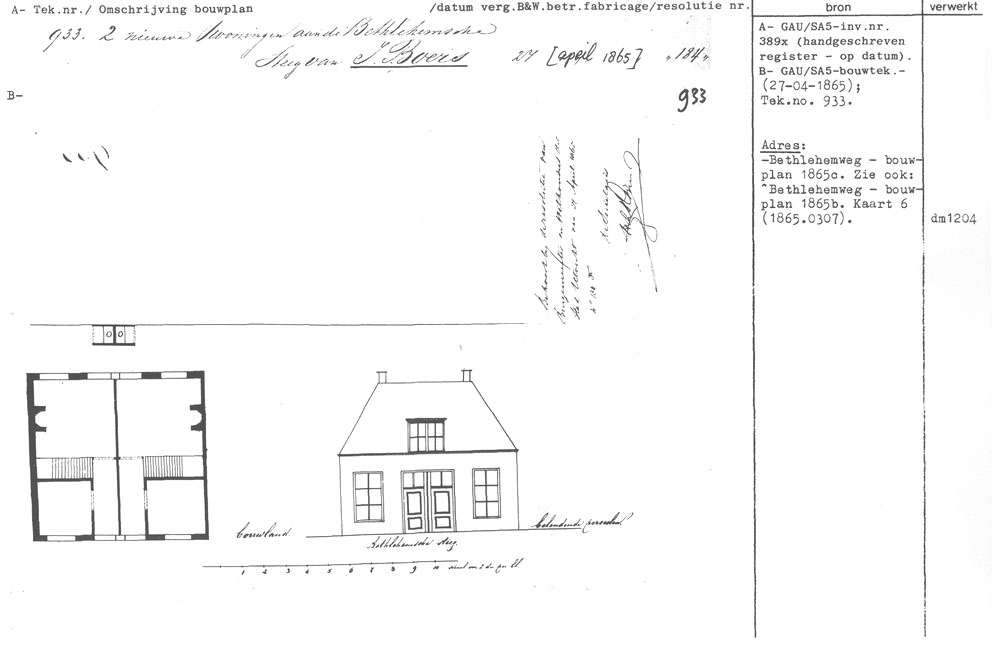 A- Tek.nr./ Omschrijving bouwplan /datum verg.B&W.betr.fabricage/resolutie nr.
bron
verwerkt
933. 2 nieuwe woningen aan de Bethlehemsche
Steeg van J. Boers 27 [april 1865] "184"
B-
933
A- GAU/SA5-inv.nr.
389x (handgeschreven
register - op datum).
B- GAU/SA5-bouwtek.-
(27-04-1865);
Tek.no. 933.
Adres:
-Bethlehemweg - bouw-
plan 1865c. Zie ook:
^Bethlehemweg - bouw-
plan 1865b. Kaart 6
(1865.0307).
dm1204
Behoort bij de resolutie van
Burgemeester en Wethouders der
Stad Utrecht van 27 April 1865
De Secretaris
0 0
bouwland
belendende perceelen
Bethlehemsche steeg.
1 2 3 4 5 6 7 8 9 10